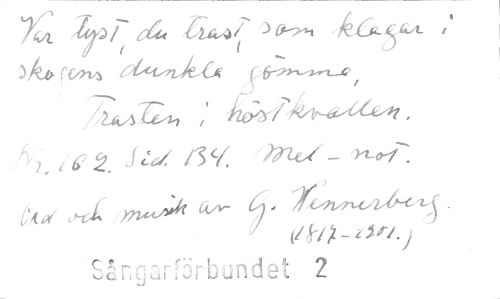 Var tyst, du trast, som klagar i
skogens dunkla gömma,
Trasten i höstkvallen.
Nr. 162. Sid. 134. Mel-not.
Ord och musik av G. Wennerberg.
(1817-1901.)
Sångarförbundet 2